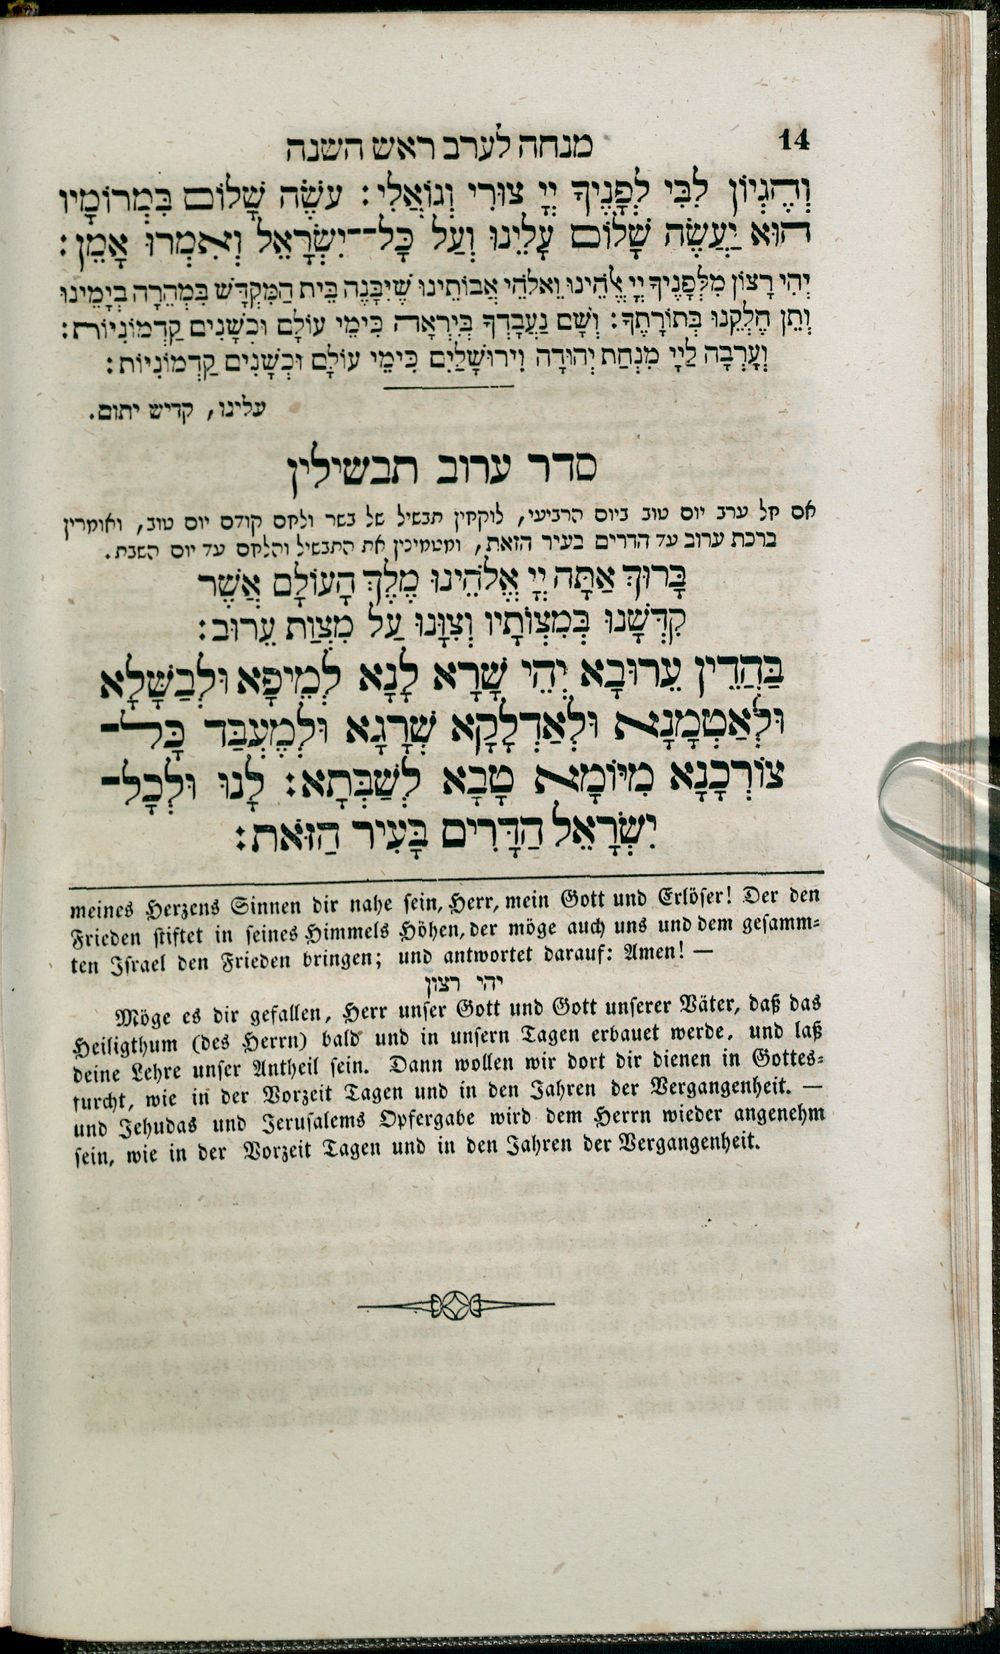 14
מנחה לערב ראש השנה
וְהֶגְיוֹן לִבִּי לְפָנֶיךָ יְיָ צוּרִי וְגוֹאֲלִי: עֹשֶׂה שָׁלוֹם בִּמְרוֹמָיו
הוּא יַעֲשֶׂה שָׁלוֹם עָלֵינוּ וְעַל כָּל־־יִשְׂרָאֵל וְאִמְרוּ אָמֵן:
יְהִי רָצוֹן מִלְּפָנֶיךָ יְיָ אֱלֹהֵינוּ וֵאלֹהֵי אֲבוֹתֵינוּ שֶׁיִּבָּנֶה בֵּית הַמִּקְדָּשׁ בִּמְהֵרָה בְיָמֵינוּ
וְתֵן חֶלְקֵנוּ בְּתוֹרָתֶךָ: וְשָׁם נַעֲבָדְךָ בְּיִרְאָה כִּימֵי עוֹלָם וּכְשָׁנִים קַדְמוֹנִיּוֹת:
וְעָרְבָה לַיְיָ מִנְחַת יְהוּדָה וִירוּשָׁלַיִם כִּימֵי עוֹלָם וּכְשָׁנִים קַדְמוֹנִיּוֹת:
עלינו, קדיש יתום.
סדר ערוב תבשילין
אם חל ערב יום טוב ביום הרביעי, לוקחין תבשיל של בשר ולחם קודם יום טוב, ואומרין
ברכת ערוב עד הדרים בעיר הזאת, ומטמינין את התבשיל והלחם עד יום השבת.
בָּרוּךְ אַתָּה יְיָ אֱלֹהֵינוּ מֶלֶךְ הָעוֹלָם אֲשֶׁר
קִדְּשָׁנוּ בְּמִצְוֹתָיו וְצִוָּנוּ עַל מִצְוַת עֵרוּב:
בַּהֲדֵין עֵרוּבָא יְהֵי שָׁרָא לָנָא לְמֵיפָא וּלְבַשָּׁלָא
וּלְאַטְמָנָא וּלְאַדְלָקָא שְׁרָגָא וּלְמֶעְבַּד כָּל־
צוֹרְכָנָא מִיּוֹמָא טָבָא לְשַׁבְּתָא: לָנוּ וּלְכָל־
יִשְׂרָאֵל הַדָּרִים בָּעִיר הַזֹּאת:
meines Herzens Sinnen dir nahe sein, Herr, mein Gott und Erlöser! Der den
Frieden stiftet in seines Himmels Höhen, der möge auch uns und dem gesamm=
ten Israel den Frieden bringen; und antwortet darauf: Amen! —
יהי רצון
Möge es dir gefallen, Herr unser Gott und Gott unserer Väter, daß das
Heiligthum (des Herrn) bald und in unsern Tagen erbauet werde, und laß
deine Lehre unser Antheil sein. Dann wollen wir dort dir dienen in Gottes=
furcht, wie in der Vorzeit Tagen und in den Jahren der Vergangenheit. —
und Jehudas und Jerusalems Opfergabe wird dem Herrn wieder angenehm
sein, wie in der Vorzeit Tagen und in den Jahren der Vergangenheit.